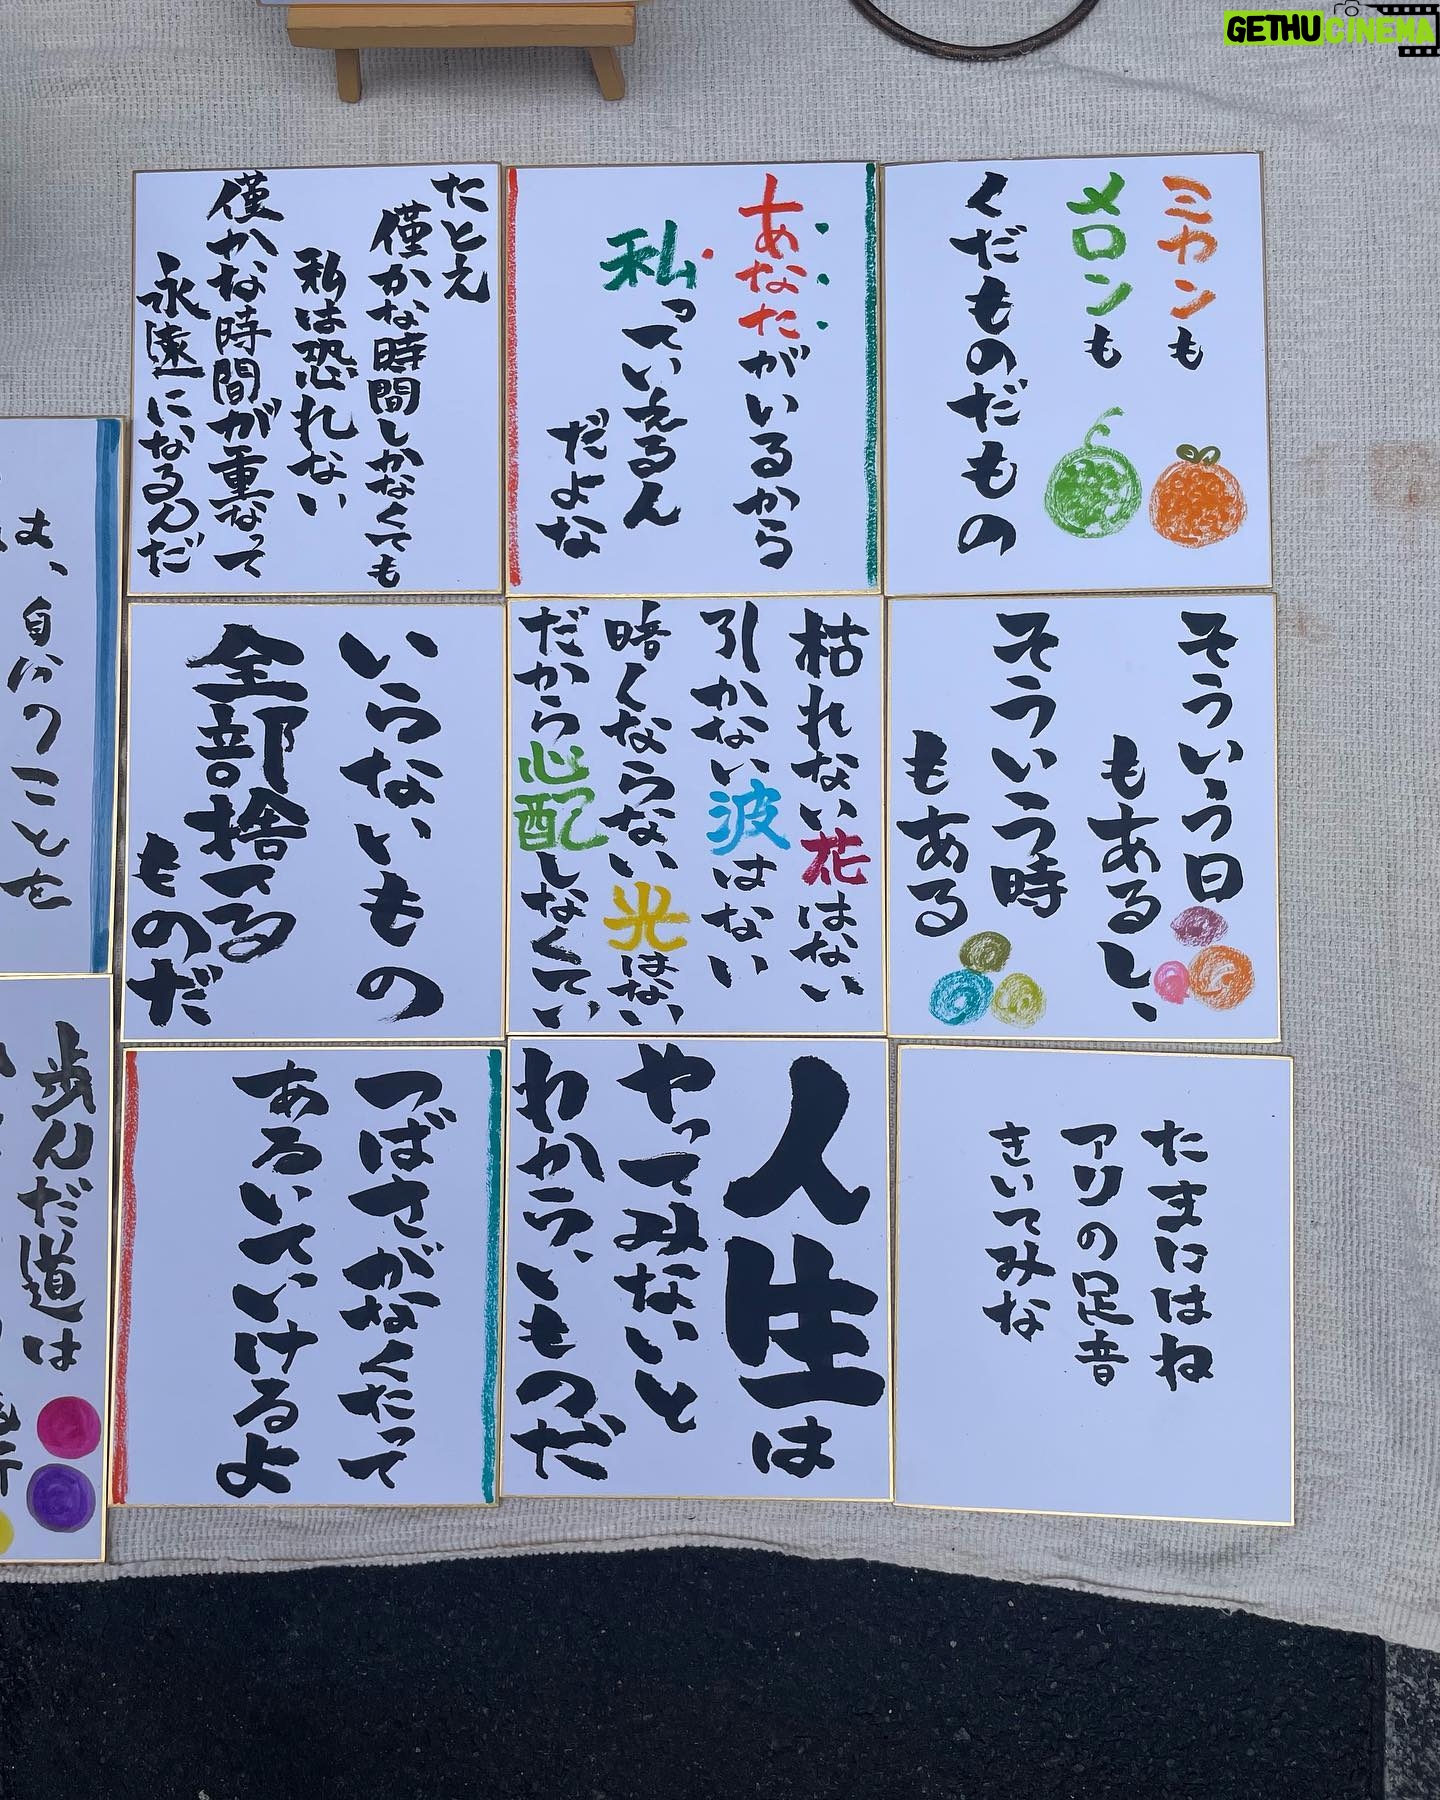 GETHU CINEMA
ミカンも
メロンも
くだものだもの
あなたがいるから
私っていえるん
だよな
たとえ
僅かな時間しかなくても
私は恐れない
僅かな時間が重なって
永遠になるんだ
そういう日
もあるし、
そういう時
もある
枯れない花はない
引かない波はない
暗くならない光はない
だから心配しなくてい
いらないもの
全部捨てる
ものだ
たまにはね
アリの足音
きいてみな
人生は
やってみないと
わからいものだ
つばさがなくたって
あるいていけるよ
は、自分のことを
歩んだ道は